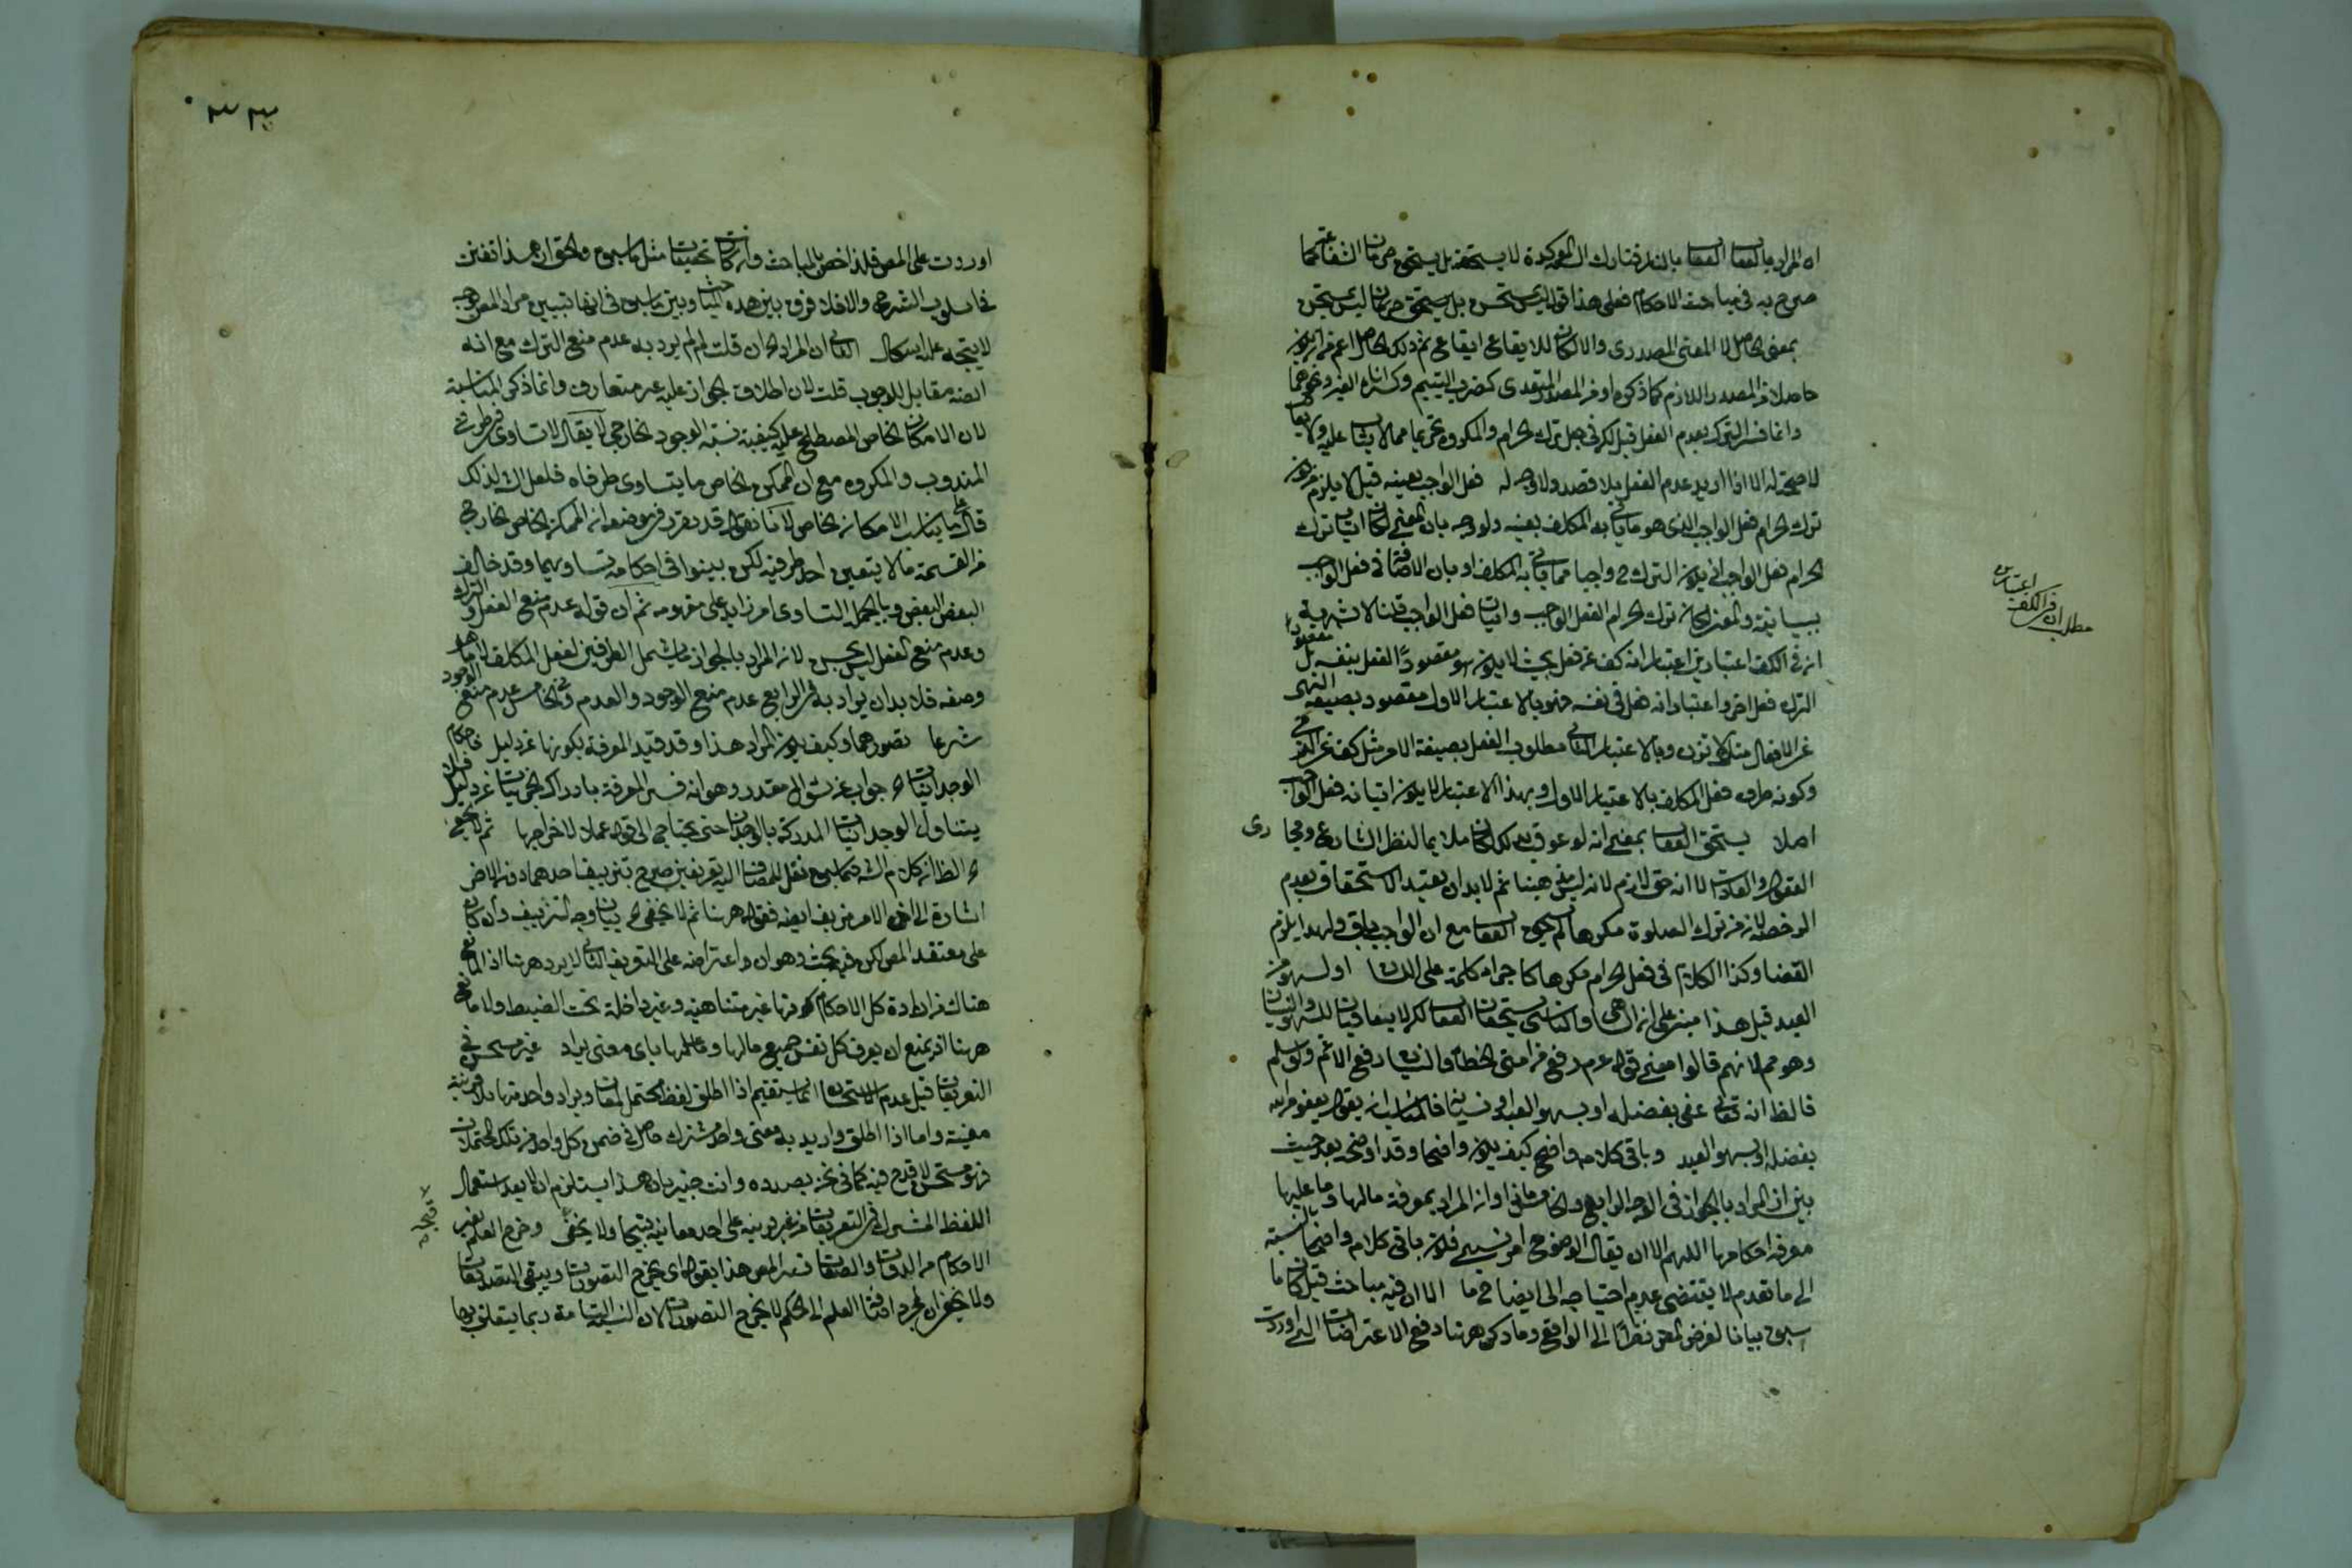 ان المراد بالعقاب العقاب بالنار فتارك السنة المؤكدة لا يستحقه بل يستحق حرمان الشفاعة كما
صرح به في مباحث الاحكام فعلى هذا قوله ليس يستحق بل يستحق حرمان ليس يستحق
بمعنى الحاصل لا المعنى المصدرى والا لكان للايقاع ايقاع ثم ذلك الحاصل اعم من ان يكون
حاصلا من المصدر اللازم كما ذكره او من المصدر المتعدى كضرب اليتيم
وانما فسر الترك بعدم الفعل قيل لكن في جعل ترك الحرام والمكروه تحريما مما لا يثاب عليه ولا يعاقب
لا صحة له الا اذا اريد عدم الفعل بلا قصد ولا وجه له فعل الواجب بعينه قيل لا يلزم من كون
ترك الحرام فعل الواجب الذى هو ما ياتى به المكلف بعينه
الحرام فعل الواجب ان يكون الترك واجبا مما ياتى به المكلف او بان الاضافة في فعل الواجب
بيانية والمعنى لكان ترك الحرام الفعل الواجب واتيان فعل الواجب قلنا لا شبهة
ان في الكف اعتبارين اعتبار انه كف عن فعل بحيث لا يكون هو مقصودا
الترك فعل اخر واعتبار انه فعل في نفسه فهو بالاعتبار الاول مقصود بصيغة النهى
عن الافعال مثل لا تزن وبالاعتبار الثانى مطلوب الفعل بصيغة الامر مثل كف عن الزنى
وكونه طرف فعل المكلف بالاعتبار الاول وبهذا الاعتبار لا يكون اتيانه فعل الواجب
اصلا يستحق العقاب بمعنى انه لو عوقب لكان ملايما لنظر الشارع ومجارى
العقول والعادات لا انه حق لازم لانه ليس مذهبنا ثم لا بد ان يقيد الاستحقاق بعدم
الرخصة لان من ترك الصلوة مكرها لم يستحق العقاب مع ان الواجب باق ولهذا يلزم
القضا وكذا الكلام في فعل الحرام مكرها كاجراء كلمة على اللسان او لسهو من
العبد قيل هذا مبنى على ان الساهى والناسى يستحقان العقاب لكن لا يعاقبان للسهو والنسيان
وهو مم لانهم قالوا معنى قوله عم رفع عن امتى الخطأ والنسيان رفع الاثم ولو سلم
فالظ انه تعالى عفى بفضله او بسهو العبد او نسيانه فالمناسب ان يقول يعفو من الله
بفضله او بسهو العبد وباقى كلامه واضح كيف يكون واضحا وقد اوضحه بعد حيث
بين ان المراد بالجواز في الوجه الرابع والخامس ماذا وان المراد بمعرفة مالها وما عليها
معرفة احكامها اللهم الا ان يقال الوضوح امر نسبى فكون باقى كلامه واضحا بالنسبة
الى ما تقدم لا يقتضى عدم احتياجه الى ايضاح ما الا ان فيه مباحث قيل كان ما
سبق بيانا لغرض المص نظرا الى الواقع وما ذكر ههنا دفع الاعتراضات التى اوردت
مطلب ان في الكف اعتبارين
٣٣
اوردت على المص فلذا خص بالمباحث وان كانت تحقيقات مثل ما سبق والحق ان هذا تفنن
في اسلوب الشرح والا فلا فرق بين هذه المباحث وبين ما سبق في انها تبيين مراد المص بوجه
لا يتجه عليه اشكال الثانى ان المراد ان قلت لم لم يرد به عدم منع الترك مع انه
ايضه مقابل للوجوب قلت لان اطلاق الجواز عليه غير متعارف وانما ذكر المناسبة
لان الامكان الخاص المصطلح عليه كيفية نسبة الوجود الخارجى لا يقال لا تساوى في طرفى
المندوب والمكروه مع ان الممكن الخاص ما يتساوى طرفاه فلعل الش لذلك
قال ما يناسب الامكان الخاص لانا نقول قد تقرر في موضعه ان الممكن الخاص الخارج
من القسمة ما لا يتعين احد طرفيه لكن بينوا في احكامه تساويهما وقد خالف
البعض البعض وبالجملة التساوى امر زايد على مفهومه ثم ان قوله عدم منع الفعل والترك
وعدم منع الفعل ليس بحسن لان المراد بالجواز ما يشمل الطرفين لفعل المكلف
وصفه فلا بد ان يراد به في الرابع عدم منع الوجود والعدم وفي الخامس عدم منع الوجود
شرعا تصورهما وكيف يكون المراد هذا وقد قيد المعرفة بكونها عن دليل
الوجدانيات جواب عن سؤال مقدر وهو انه فسر المعرفة بادراك الجزئيات عن دليل فلا
يتناول الوجدانيات المدركة بالوجدان حتى يحتاج الى قوله عملا لاخراجها ثم لا يخفى
الظ ان كلام الش فيما سبق نقل للمضاف اليه تعريفين صرح بتزييف احدهما دون الاخر
اشارة الى ان الاخر مزيف ايضه فقوله ههنا ثم لا يخفى بيان وجه التزييف وان كان
على معتقد المص لكن فيه بحث وهو ان اعتراضه على التعريف الثانى لا يرد ههنا اذ المانع
هناك من ارادة كل الاحكام كونها غير متناهية وغير داخلة تحت الضبط ولا مانع
ههنا اذ يمنع ان يعرف كل نفس جميع مالها وما عليها باى معنى يراد غير مستحسن في
التعريفات قيل عدم الاستحسان انما يستقيم اذا اطلق لفظ محتمل لمعان ويراد واحد منها بلا قرينة
معينة واما اذا اطلق واريد به معنى واحد مشترك حاصل في ضمن كل واحد من تلك المحتملات
فهو مستحسن لا قدح فيه كما في نحن بصدده وانت خبير بان هذا يستلزم ان لا يعد استعمال
اللفظ المشترك في التعريفات من غير قرينة على احد معانيه قبيحا ولا يخفى وخرج العلم بغير
الاحكام من الذوات والصفات فسر المص هذا بقوله اى يخرج التصورات ويبقى التصديقات
ولا يخفى ان بمجرد اضافة العلم الى الحكم لا يخرج التصورات لان النسبة التامة ربما يتعلق بها